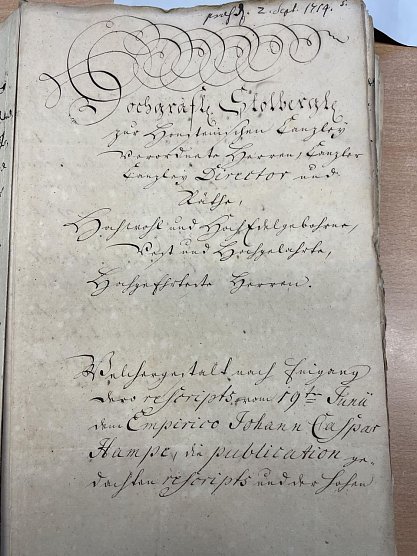 præs. d. 2. Sept. 1714. 5.
Hochgräfl. Stolbergl.
zur Honsteinischen Canzley
Verordnete Herren, Canzler
Canzley Director und
Räthe,
Hochwohl und HochEdelgebohrne,
Vest und Hochgelahrte,
Hochgeehrteste Herren.
Welchergestalt nach Eingang
dero rescripts vom 19ten Junii
dem Empirico Johann Caspar
Hampe, die publication ge-
dachten rescripts und der hohen